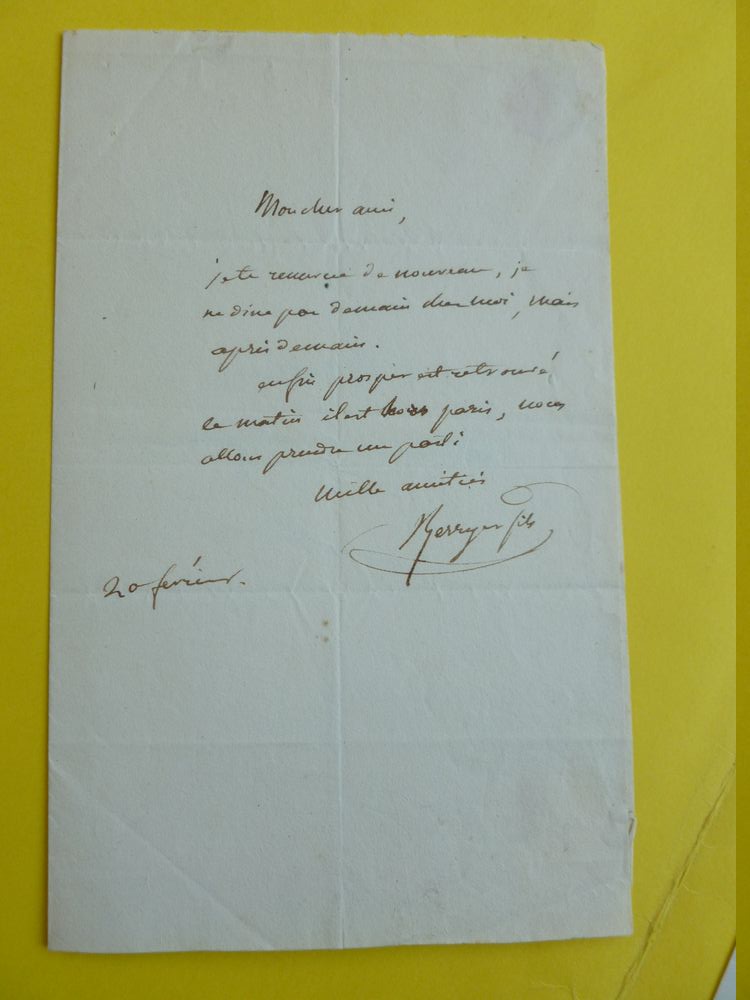 Mon cher ami,
je te remercie de nouveau, je
ne dine pas demain chez moi, mais
après demain.
enfin prosper est retrouvé
le matin il est hors paris, nous
allons prendre un parti
Mille amitiés
Berryer fils
20 fevrier.